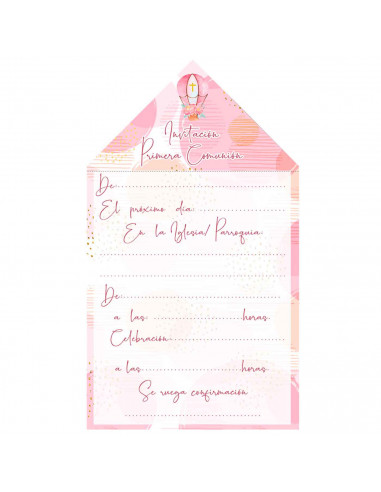 Invitación
Primera Comunión
De:
El próximo día:
En la Iglesia/Parroquia:
De:
a las horas.
Celebración:
a las horas.
Se ruega confirmación